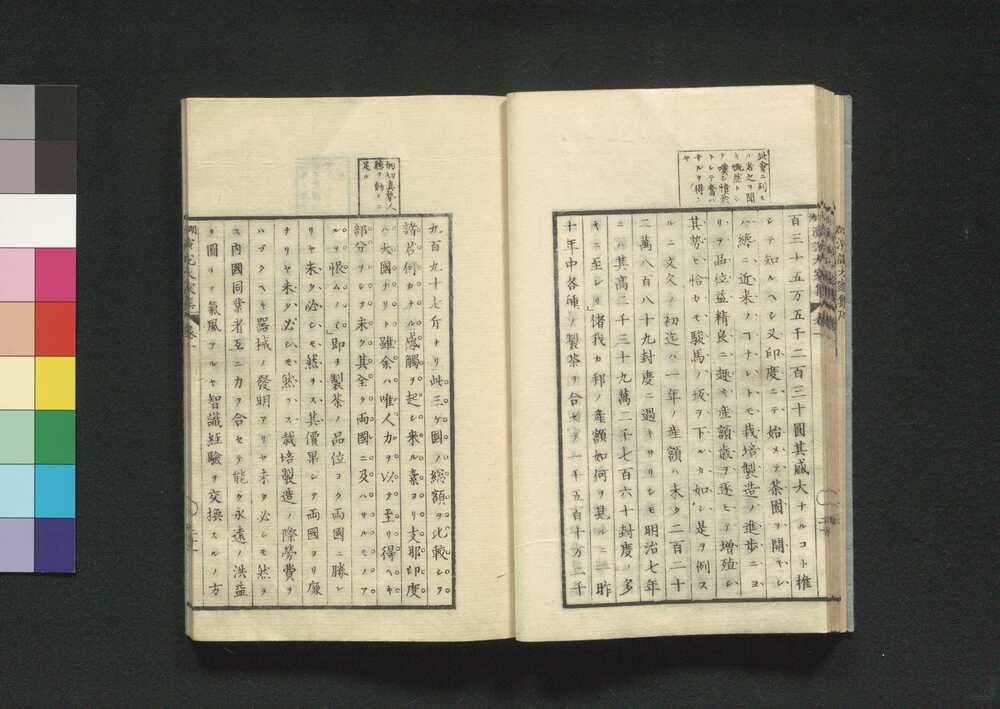 此會ニ列ス
百三十五万五千二百三十圓其盛大ナルコト推
シテ知ルヘシ又印度ニテ始メテ茶園ヲ開キシ
ハ纔ニ近来ノコナレトモ栽培製造ノ進歩ニヨ
リテ品位益精良ニ趣キ産額歳ヲ逐ヒテ増殖シ
其勢ヒ恰カモ駿馬ノ坂ヲ下ルカ如シ是ヲ例ス
ルニ文久ノ初迄ハ一年ノ産額ハ未タ二百二十
二萬八百八十九封度ニ過キサリシモ明治七年
ニハ其高二千三十九萬二千七百六十封度ノ多
キニ至レリ偖我カ邦ノ産額如何ヲ見ルニ昨
十年中各種ノ製茶ヲ合セテ一千五百十万二千
痛切真摯人
聴ヲ動カスニ
足ル
九百九十七斤ナリ此三ケ國ノ総額ヲ比較シテ
諸君何カナル感觸ヲ起シ来ル素ヨリ支那印度
ハ大國ナリト雖余ハ唯人力ヲ以テ至リ得ヘキ
部分ヲシテ未タ其全ク両國ニ及ハサルモノア
ルヲ恨ムノミ即チ製茶ノ品位ヨク両國ニ勝レ
リヤ未タ必シモ然ラス其價果シテ両國ヨリ廉
ナリヤ未タ必シモ然ラス栽培製造ノ際勞費ヲ
ハブクヘキ器械ノ發明アリヤ未タ必シモ然ラ
ス内國同業者互ニ力ヲ合セテ能ク永遠ノ洪益
ヲ圖ルノ氣風アルヤ智識経驗ヲ交換スルノ方